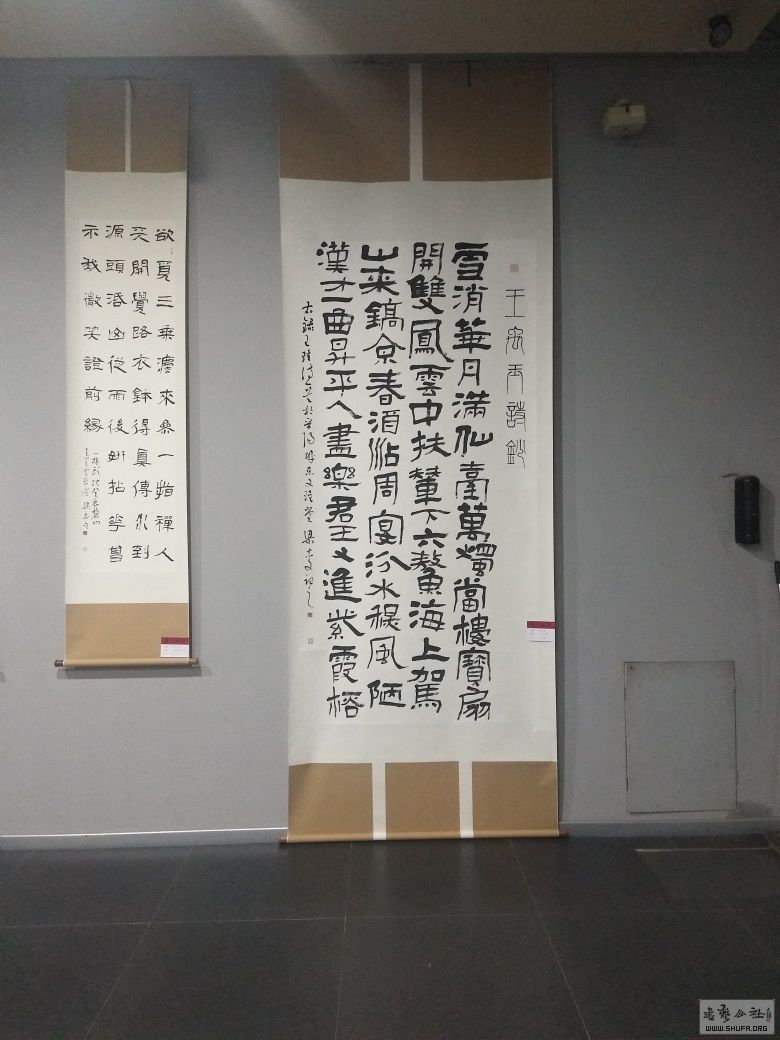 王禹玉詩鈔
雪消華月滿仙臺萬燭當樓寶扇
開雙鳳雲中扶輦下六鰲海上駕
山來鎬京春酒沾周宴汾水穐風陋
漢才一曲昇平人盡樂君王又進紫霞桮
右錄王珪詩
欲覓三乘灋來參一指禪人
天開覺路衣鉢得真傳水到
源頭活山從雨後妍拈華曾
示我微笑證前緣
書藝公社
WWW.SHUFA.ORG